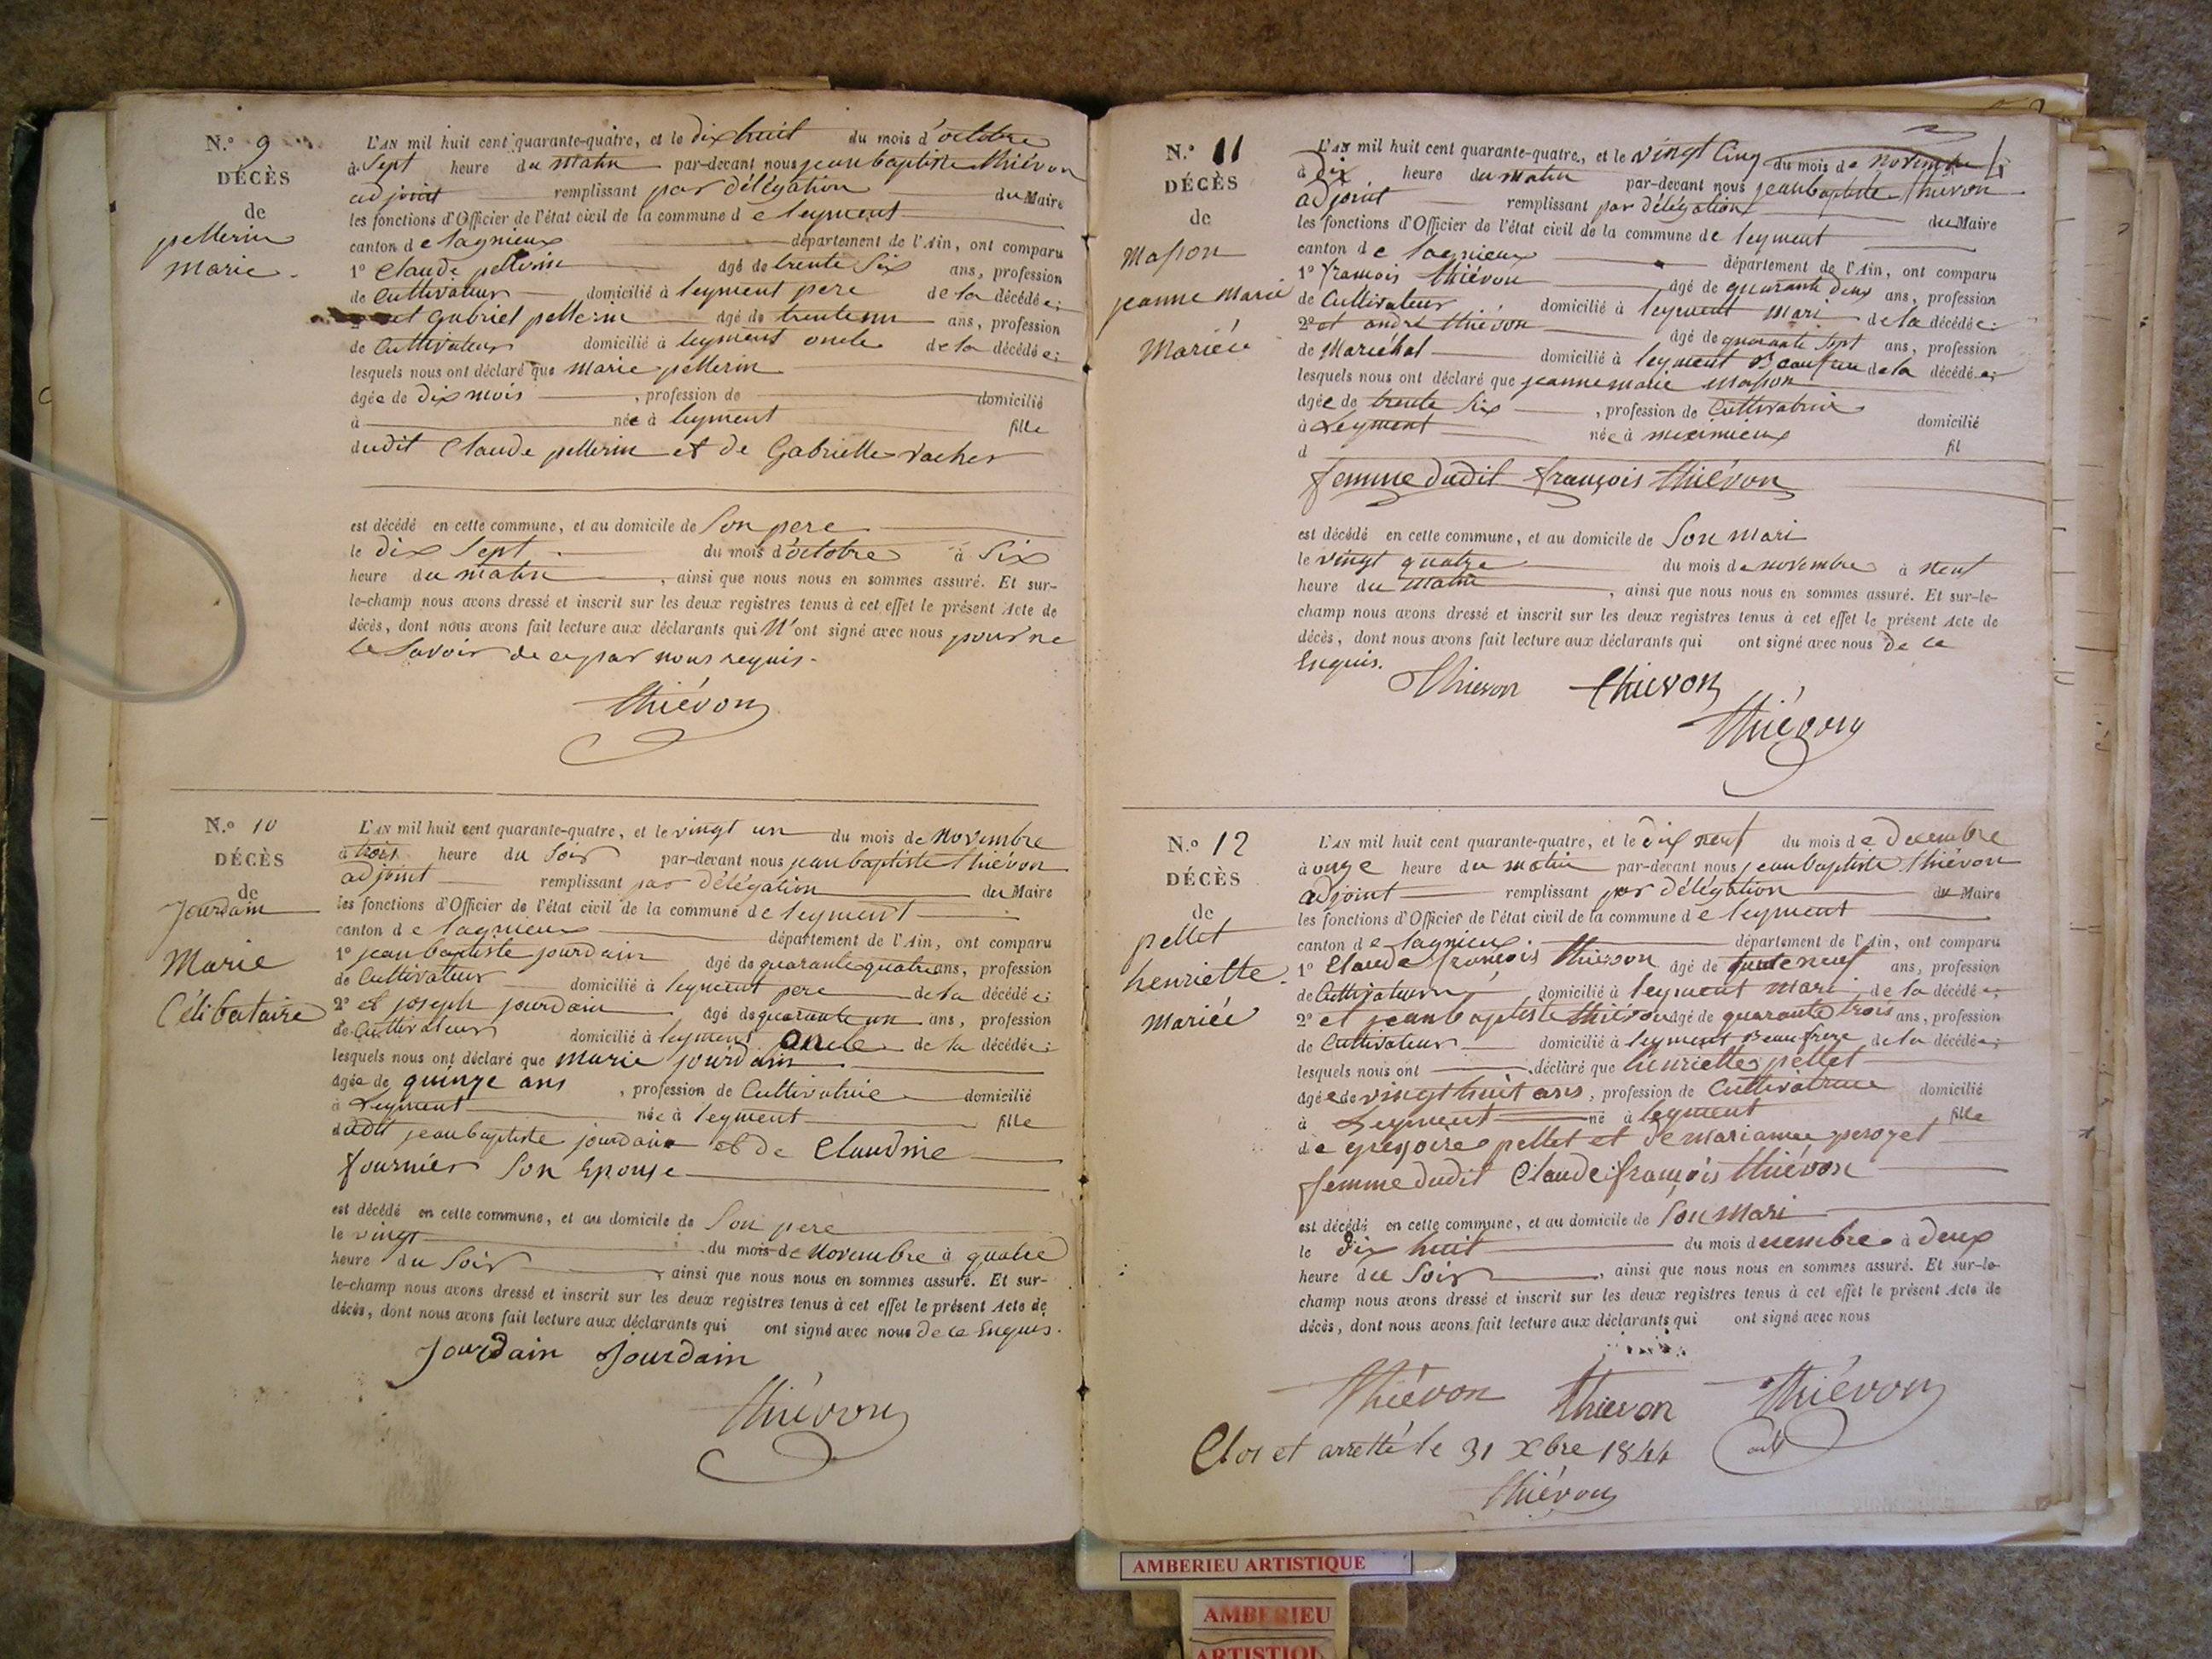 N.º 9
DÉCÈS
de
pellerin
marie.
L'AN mil huit cent quarante-quatre, et le dix huit du mois d'octobre
à Sept heure du matin par-devant nous jean baptiste thiévon
adjoint remplissant par délégation du Maire
les fonctions d'Officier de l'état civil de la commune de leyment
canton de lagnieux département de l'Ain, ont comparu
1º Claude pellerin âgé de trente Six ans, profession
de Cultivateur domicilié à leyment pere de la décédée;
et gabriel pellerin âgé de trente un ans, profession
de Cultivateur domicilié à leyment oncle de la décédée;
lesquels nous ont déclaré que marie pellerin
âgée de dix mois, profession de domicilié
à née à leyment fille
dudit Claude pellerin et de Gabrielle vacher
est décédé en cette commune, et au domicile de Son pere
le dix Sept du mois d'octobre à Six
heure du matin, ainsi que nous nous en sommes assuré. Et sur-
le-champ nous avons dressé et inscrit sur les deux registres tenus à cet effet le présent Acte de
décès, dont nous avons fait lecture aux déclarants qui N'ont signé avec nous pour ne
le Savoir de ce par nous requis.
thiévon
N.º 10
DÉCÈS
de
Jourdain
Marie
Célibataire
L'AN mil huit cent quarante-quatre, et le vingt un du mois de novembre
à trois heure du Soir par-devant nous jean baptiste thiévon
adjoint remplissant par délégation du Maire
les fonctions d'Officier de l'état civil de la commune de leyment
canton de lagnieux département de l'Ain, ont comparu
1º jean baptiste jourdain âgé de quarante quatre ans, profession
de Cultivateur domicilié à leyment pere de la décédée;
2º et joseph jourdain âgé de quarante un ans, profession
de Cultivateur domicilié à leyment oncle de la décédée;
lesquels nous ont déclaré que marie jourdain
âgée de quinze ans, profession de Cultivatrice domicilié
à Leyment née à leyment fille
dudit jean baptiste jourdain et de Claudine
fournier Son Epouse
est décédé en cette commune, et au domicile de Son pere
le vingt du mois de Novembre à quatre
heure du Soir, ainsi que nous nous en sommes assuré. Et sur-
le-champ nous avons dressé et inscrit sur les deux registres tenus à cet effet le présent Acte de
décès, dont nous avons fait lecture aux déclarants qui ont signé avec nous de ce Enquis.
Jourdain Jourdain
thiévon
N.º 11
DÉCÈS
de
Masson
jeanne Marie
Mariée
L'AN mil huit cent quarante-quatre, et le vingt Cinq du mois de novembre
à Dix heure du matin par-devant nous jean baptiste thievon
adjoint remplissant par délégation du Maire
les fonctions d'Officier de l'état civil de la commune de leyment
canton de lagnieux département de l'Ain, ont comparu
1º françois thiévon âgé de quarante deux ans, profession
de Cultivateur domicilié à leyment mari de la décédée;
2º et andré thiévon âgé de quarante sept ans, profession
de Maréchal domicilié à leyment Beaufrere de la décédée;
lesquels nous ont déclaré que jeanne marie masson
âgée de trente Six, profession de Cultivatrice
à Leyment née à meximieux domicilié
d fil
femme dudit françois thiévon
est décédé en cette commune, et au domicile de Son mari
le vingt quatre du mois de novembre à neuf
heure du matin, ainsi que nous nous en sommes assuré. Et sur-le-
champ nous avons dressé et inscrit sur les deux registres tenus à cet effet le présent Acte de
décès, dont nous avons fait lecture aux déclarants qui ont signé avec nous de ce
Enquis.
Thievon thievon
thiévon
N.º 12
DÉCÈS
de
pellet
henriette.
mariée
L'AN mil huit cent quarante-quatre, et le dix neuf du mois de decembre
à onze heure du matin par-devant nous jean baptiste thiévon
adjoint remplissant par délégation du Maire
les fonctions d'Officier de l'état civil de la commune de leyment
canton de lagnieux département de l'Ain, ont comparu
1º Claude françois thiévon âgé de trente neuf ans, profession
de Cultivateur domicilié à leyment mari de la décédée;
2º et jean baptiste thiévon âgé de quarante trois ans, profession
de Cultivateur domicilié à leyment Beaufrere de la décédée;
lesquels nous ont déclaré que henriette pellet
âgée de vingt huit ans, profession de Cultivatrice domicilié
à Leyment né à leyment fille
de gregoire pellet et de marianne perozet
femme dudit Claude françois thiévon
est décédé en cette commune, et au domicile de Son mari
le dix huit du mois decembre à deux
heure du Soir, ainsi que nous nous en sommes assuré. Et sur-le-
champ nous avons dressé et inscrit sur les deux registres tenus à cet effet le présent Acte de
décès, dont nous avons fait lecture aux déclarants qui ont signé avec nous
thiévon thievon thiévon
Clos et arretté le 31 Xbre 1844
thiévon
AMBERIEU ARTISTIQUE
AMBERIEU